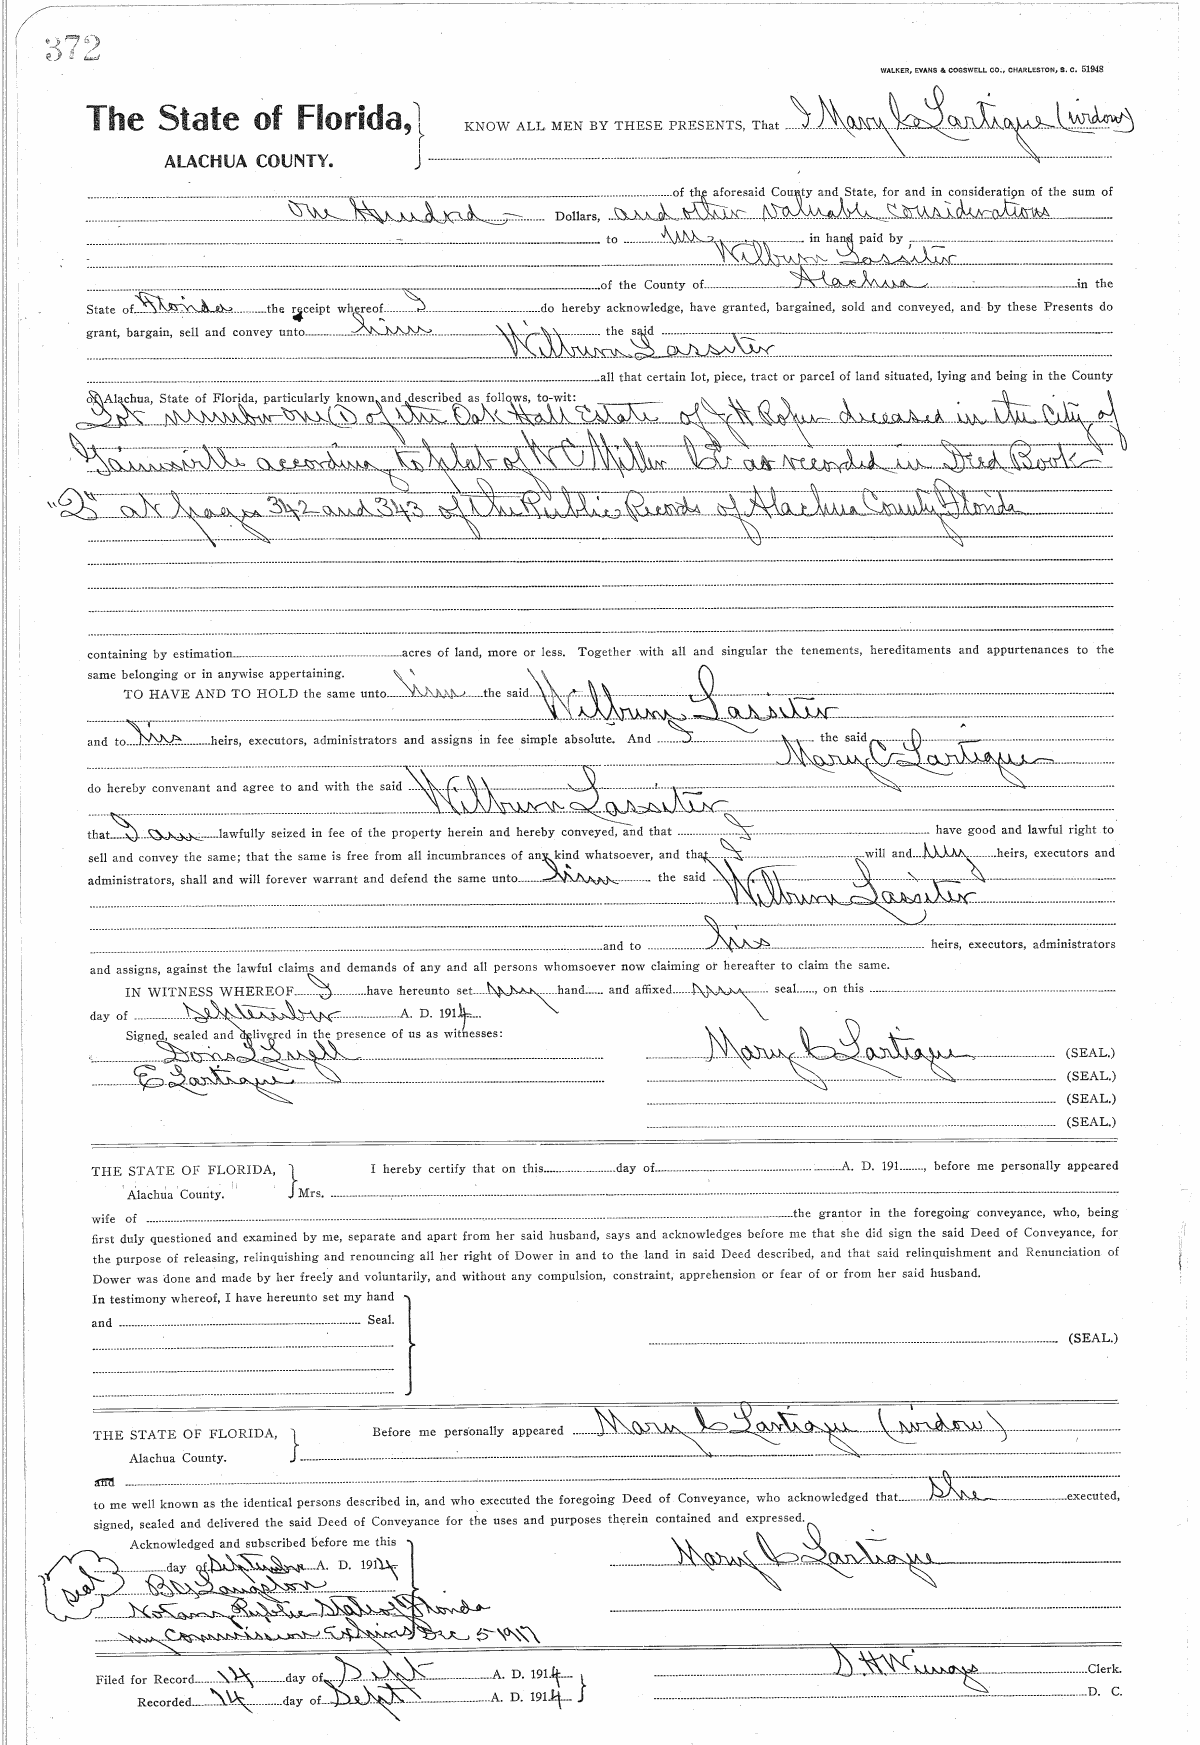 372
WALKER, EVANS & COGSWELL CO., CHARLESTON, S. C. 51948
The State of Florida, KNOW ALL MEN BY THESE PRESENTS, That I Mary C Lartigue (widow)
ALACHUA COUNTY.
of the aforesaid County and State, for and in consideration of the sum of
One Hundred Dollars, and other valuable considerations
to me in hand paid by
Wilburn Lassiter
of the County of Alachua in the
State of Florida the receipt whereof I do hereby acknowledge, have granted, bargained, sold and conveyed, and by these Presents do
grant, bargain, sell and convey unto him the said
Wilburn Lassiter
all that certain lot, piece, tract or parcel of land situated, lying and being in the County
of Alachua, State of Florida, particularly known and described as follows, to-wit:
Lot number one (1) of the Oak Hall Estate of J H Roper deceased in the City of
Gainesville according to plat of W C Miller C.E. as recorded in Deed Book
at pages 342 and 343 of the Public Records of Alachua County Florida
containing by estimation acres of land, more or less. Together with all and singular the tenements, hereditaments and appurtenances to the
same belonging or in anywise appertaining.
TO HAVE AND TO HOLD the same unto him the said
Wilburn Lassiter
and to his heirs, executors, administrators and assigns in fee simple absolute. And I the said
Mary C Lartigue
do hereby convenant and agree to and with the said
Wilburn Lassiter
that I am lawfully seized in fee of the property herein and hereby conveyed, and that I have good and lawful right to
sell and convey the same; that the same is free from all incumbrances of any kind whatsoever, and that I will and my heirs, executors and
administrators, shall and will forever warrant and defend the same unto him the said
Wilburn Lassiter
and to his heirs, executors, administrators
and assigns, against the lawful claims and demands of any and all persons whomsoever now claiming or hereafter to claim the same.
IN WITNESS WHEREOF I have hereunto set my hand and affixed my seal, on this
day of September A. D. 1914
Signed, sealed and delivered in the presence of us as witnesses:
Mary C Lartigue (SEAL.)
E Lartigue (SEAL.)
(SEAL.)
(SEAL.)
THE STATE OF FLORIDA, I hereby certify that on this day of A. D. 191 , before me personally appeared
Alachua County. Mrs.
wife of the grantor in the foregoing conveyance, who, being
first duly questioned and examined by me, separate and apart from her said husband, says and acknowledges before me that she did sign the said Deed of Conveyance, for
the purpose of releasing, relinquishing and renouncing all her right of Dower in and to the land in said Deed described, and that said relinquishment and Renunciation of
Dower was done and made by her freely and voluntarily, and without any compulsion, constraint, apprehension or fear of or from her said husband.
In testimony whereof, I have hereunto set my hand
and Seal.
(SEAL.)
THE STATE OF FLORIDA, Before me personally appeared Mary C Lartigue (widow)
Alachua County.
and
to me well known as the identical persons described in, and who executed the foregoing Deed of Conveyance, who acknowledged that She executed,
signed, sealed and delivered the said Deed of Conveyance for the uses and purposes therein contained and expressed.
Acknowledged and subscribed before me this
Mary C Lartigue
day of September A. D. 1914
seal
Langston
Notary Public State of Florida
my Commission Expires Dec 5 1917
Filed for Record 14 day of Sept A. D. 1914 S. H Wienges Clerk.
Recorded 14 day of Sept A. D. 1914 D. C.